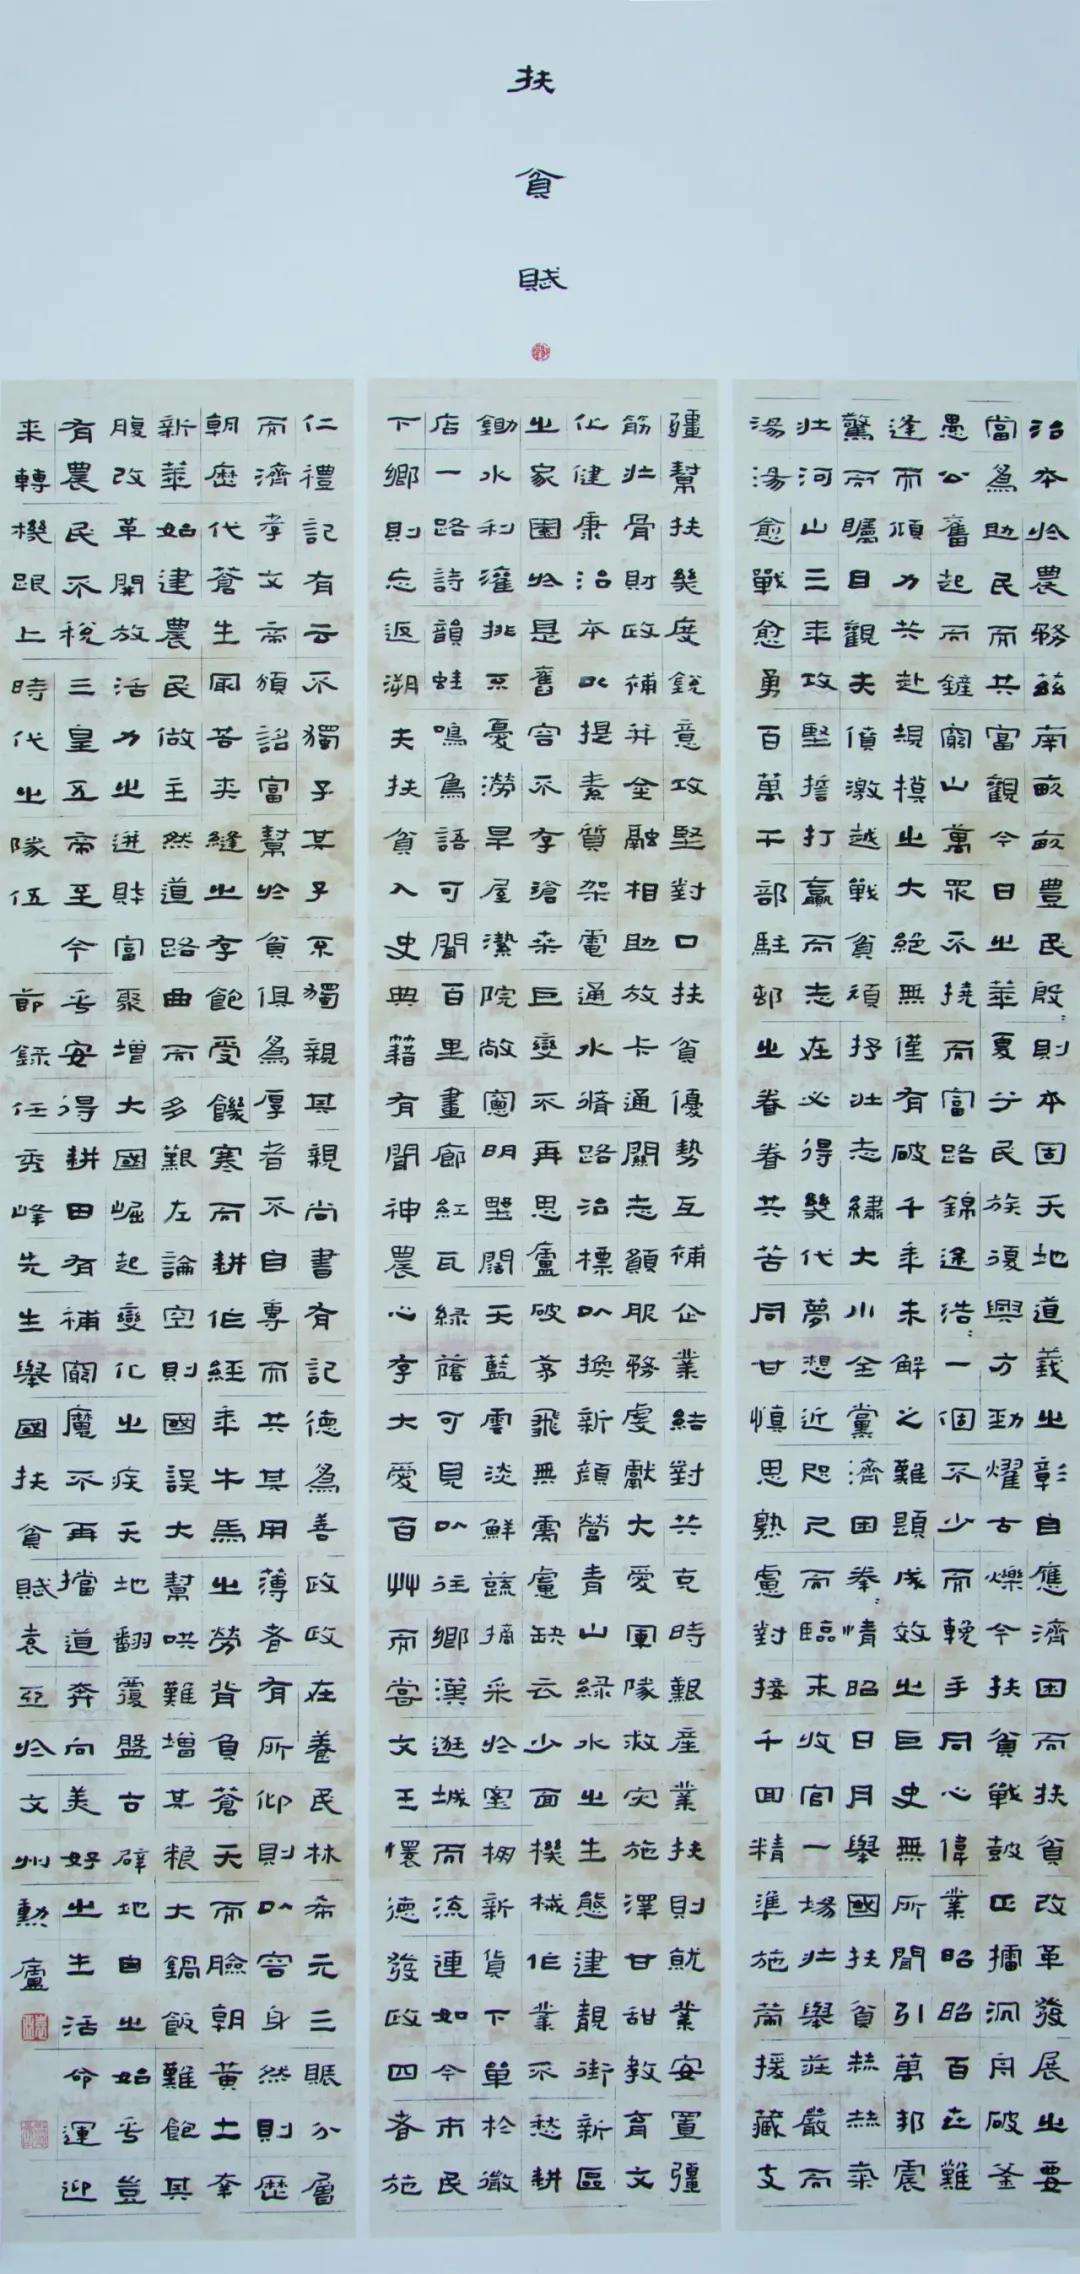 扶貧賦
治本於農務茲南畝畝豊民殷則本固天地道義之彰自應濟困而扶貧改革發展之要
當為助民而共富觀今日之華夏兮民族復興方勁燿古爍今扶貧戰鼓正擂沉舟破釜
愚公奮起而鏟窮山萬眾不撓而富路錦途浩一個不少而輓手同心偉業昭昭百丗難
逢而傾力共赴規模之大絕無僅有破千年未解之難題成效之巨史無所聞引萬邦震
驚而矚目觀夫僨激越戰貧頑抒壯志繡大小全黨濟困拳情昭日月舉國扶貧赫赫氣
壯河山三年攻堅誓打贏而志在必得幾代夢想近咫尺而臨末收官一場壯舉莊嚴而
湯湯愈戰愈勇百萬干部駐邨之眷眷共苦同甘慎思熟慮對接千回精準施策援藏支
疆幫扶幾度銳意攻堅對口扶貧優勢互補企業結對共克時艱產業扶則就業安置彊
筋壯骨財政補并金融相助放卡通關志願服務虔獻大愛軍隊救灾施澤甘甜教育文
化健康治本以提素質架電通水脩路治標以換新顔營青山綠水之生態建靚街新區
之家園於是舊容不存滄桑巨變不再思廬破茅飛無需慮缺衣少面機械作業不愁耕
鋤水利灌排不憂澇旱屋潔院敞窻明墅闊天藍雲淡鮮蔬摘采於室棚新貨下單於微
店一路詩韻蛙鳴鳥語可聞百里畫廊紅瓦緑蔭可見以往鄉漢逛城而流連如今市民
下鄉則忘返溯夫扶貧入史典籍有聞神農心存大愛百艸而嘗文王懷德發政四者施
仁禮記有云不獨子其子不獨親其親尚書有記德為善政政在養民林希元三賑分層
而濟孝文帝頒詔富幫於貧俱為厚者不自專而共其用薄者有所仰則以容身然則歷
朝歷代蒼生罔苦夾縫之存飽受饑寒而耕作經年牛馬之勞背負蒼天而臉朝黃土
新華始建農民做主然道路曲而多艱左論空則國誤大幫哄難增其粮大鍋飯難飽其
腹改革開放活力之迸財富聚增大國崛起變化之疾天地翻覆盤古辟地自之始乎豈
有農民不稅三皇五帝至今乎安得耕田有補窮魔不再擋道奔向美好之生活命運迎
来轉機跟上時代之隊伍 節錄任秀峰先生舉國扶貧賦袁亞於文州勳廬